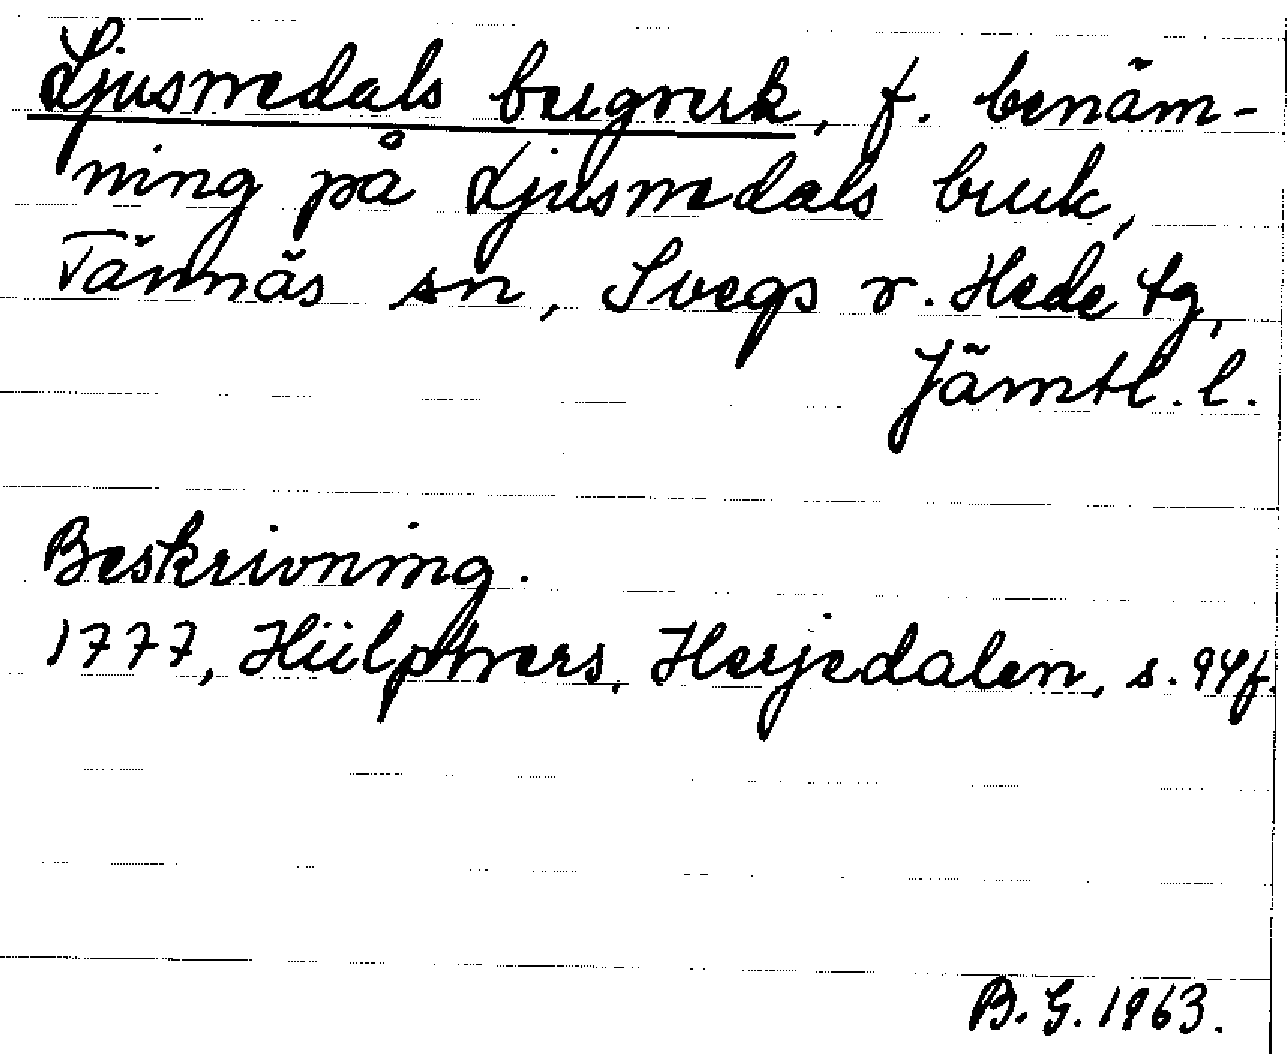 Ljusnedals bergvrk, f. benäm-
ning på Ljusnedals bruk,
Tännäs sn, Svegs r. Hede tg,
Jämtl. l.
Beskrivning.
1777, Hülphers, Herjedalen, s. 94f.
B. G. 1963.